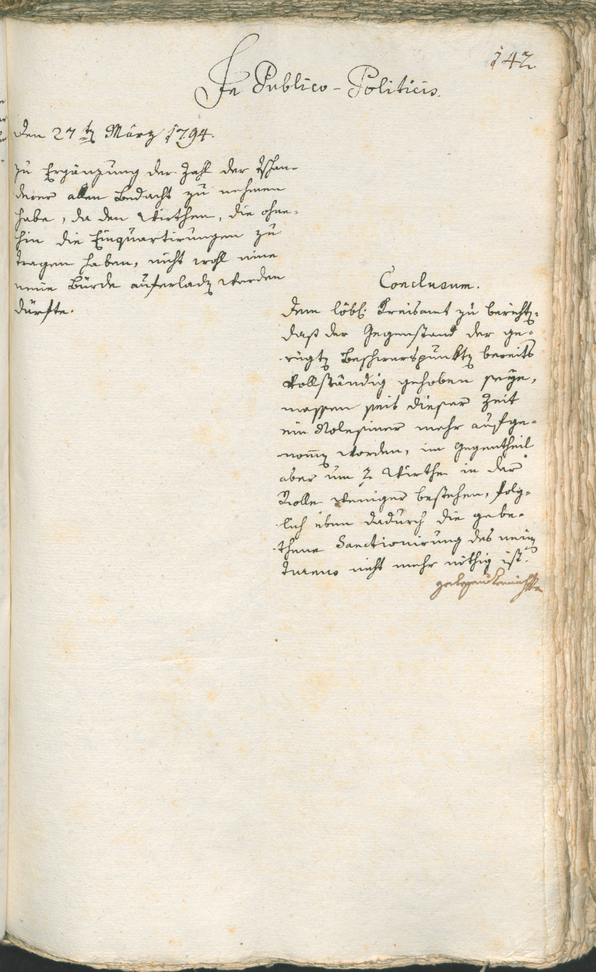 142
In Publico-Politicis.
den 27t März 1794.
zu Ergänzung der Zahl der
deren allen Bedacht zu nehmen
habe, da den Wirthen, die ohne-
hin die Einquartirungen zu
tragen haben, nicht wohl eine
neue Bürde auferladen werden
dürfte.
Conclusum.
dem löbl: Kreisamt zu berichten:
daß der Gegenstand der ge-
rügten Beschwerspunkten bereits
vollständig gehoben seye,
massen seit dieser Zeit
ein mehr aufge-
nommen worden, im Gegentheil
aber um 2 Wirthe in der
Rolle weniger bestehen, folg-
lich eben dadurch die gebe-
thene Sanctionirung des
nicht mehr nöthig ist.